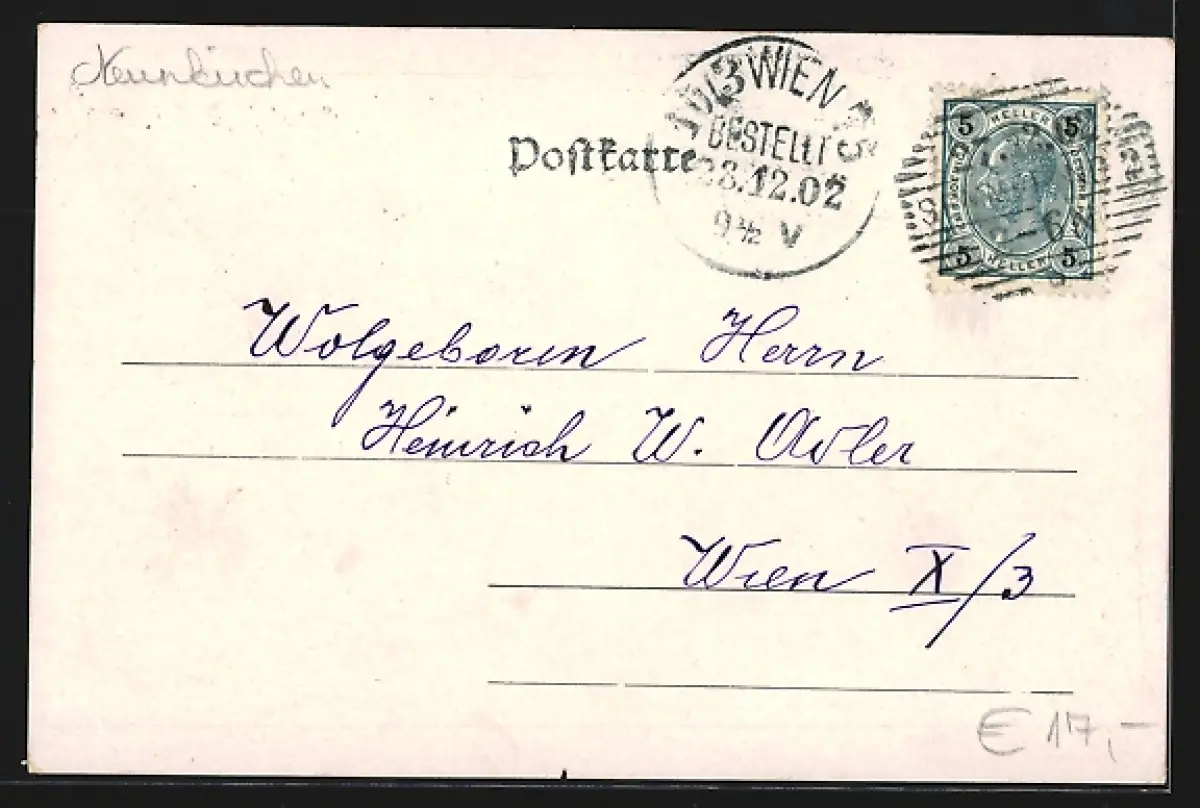 Neunkirchen
10/3 WIEN
BESTELLT
28.12.02
9½ V
5 HELLER 5
5 HELLER 5
Postkarte
Wolgeboren Herrn
Heinrich W. Adler
Wien X/3
€ 17,-